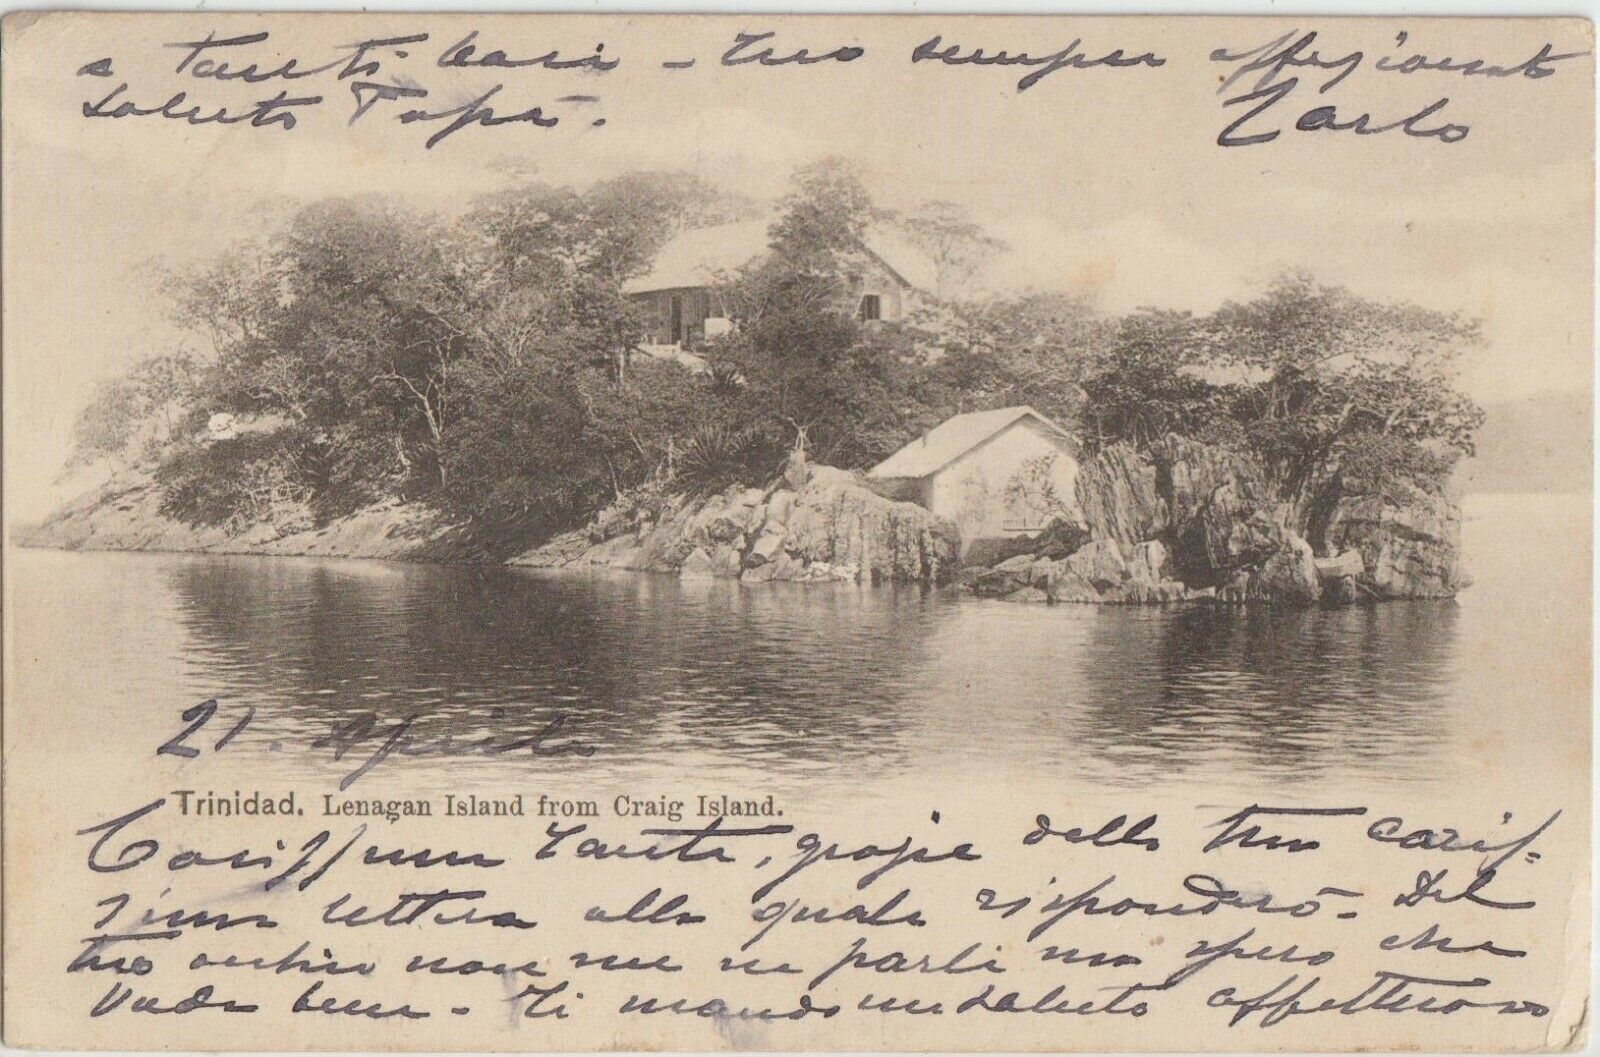 a tanti cari - tuo semper affezionato
saluto Papà. Carlo
21. Aprile
Trinidad. Lenagan Island from Craig Island.
Carissima, grazie della tua caris-
sima lettera alla quale risponderò. Del
tuo non me ne parli ma spero che
vada bene. Ti mando un saluto affettuoso